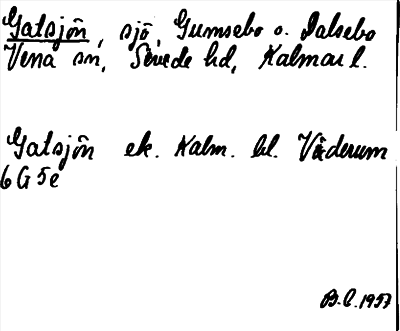 Gatsjön, sjö, Gumsebo o. Dalsebo
Vena sn, Sevede hd, Kalmar l.
Gatsjön ek. Kalm. bl. Väderum
6 G 5e
B.C. 1957